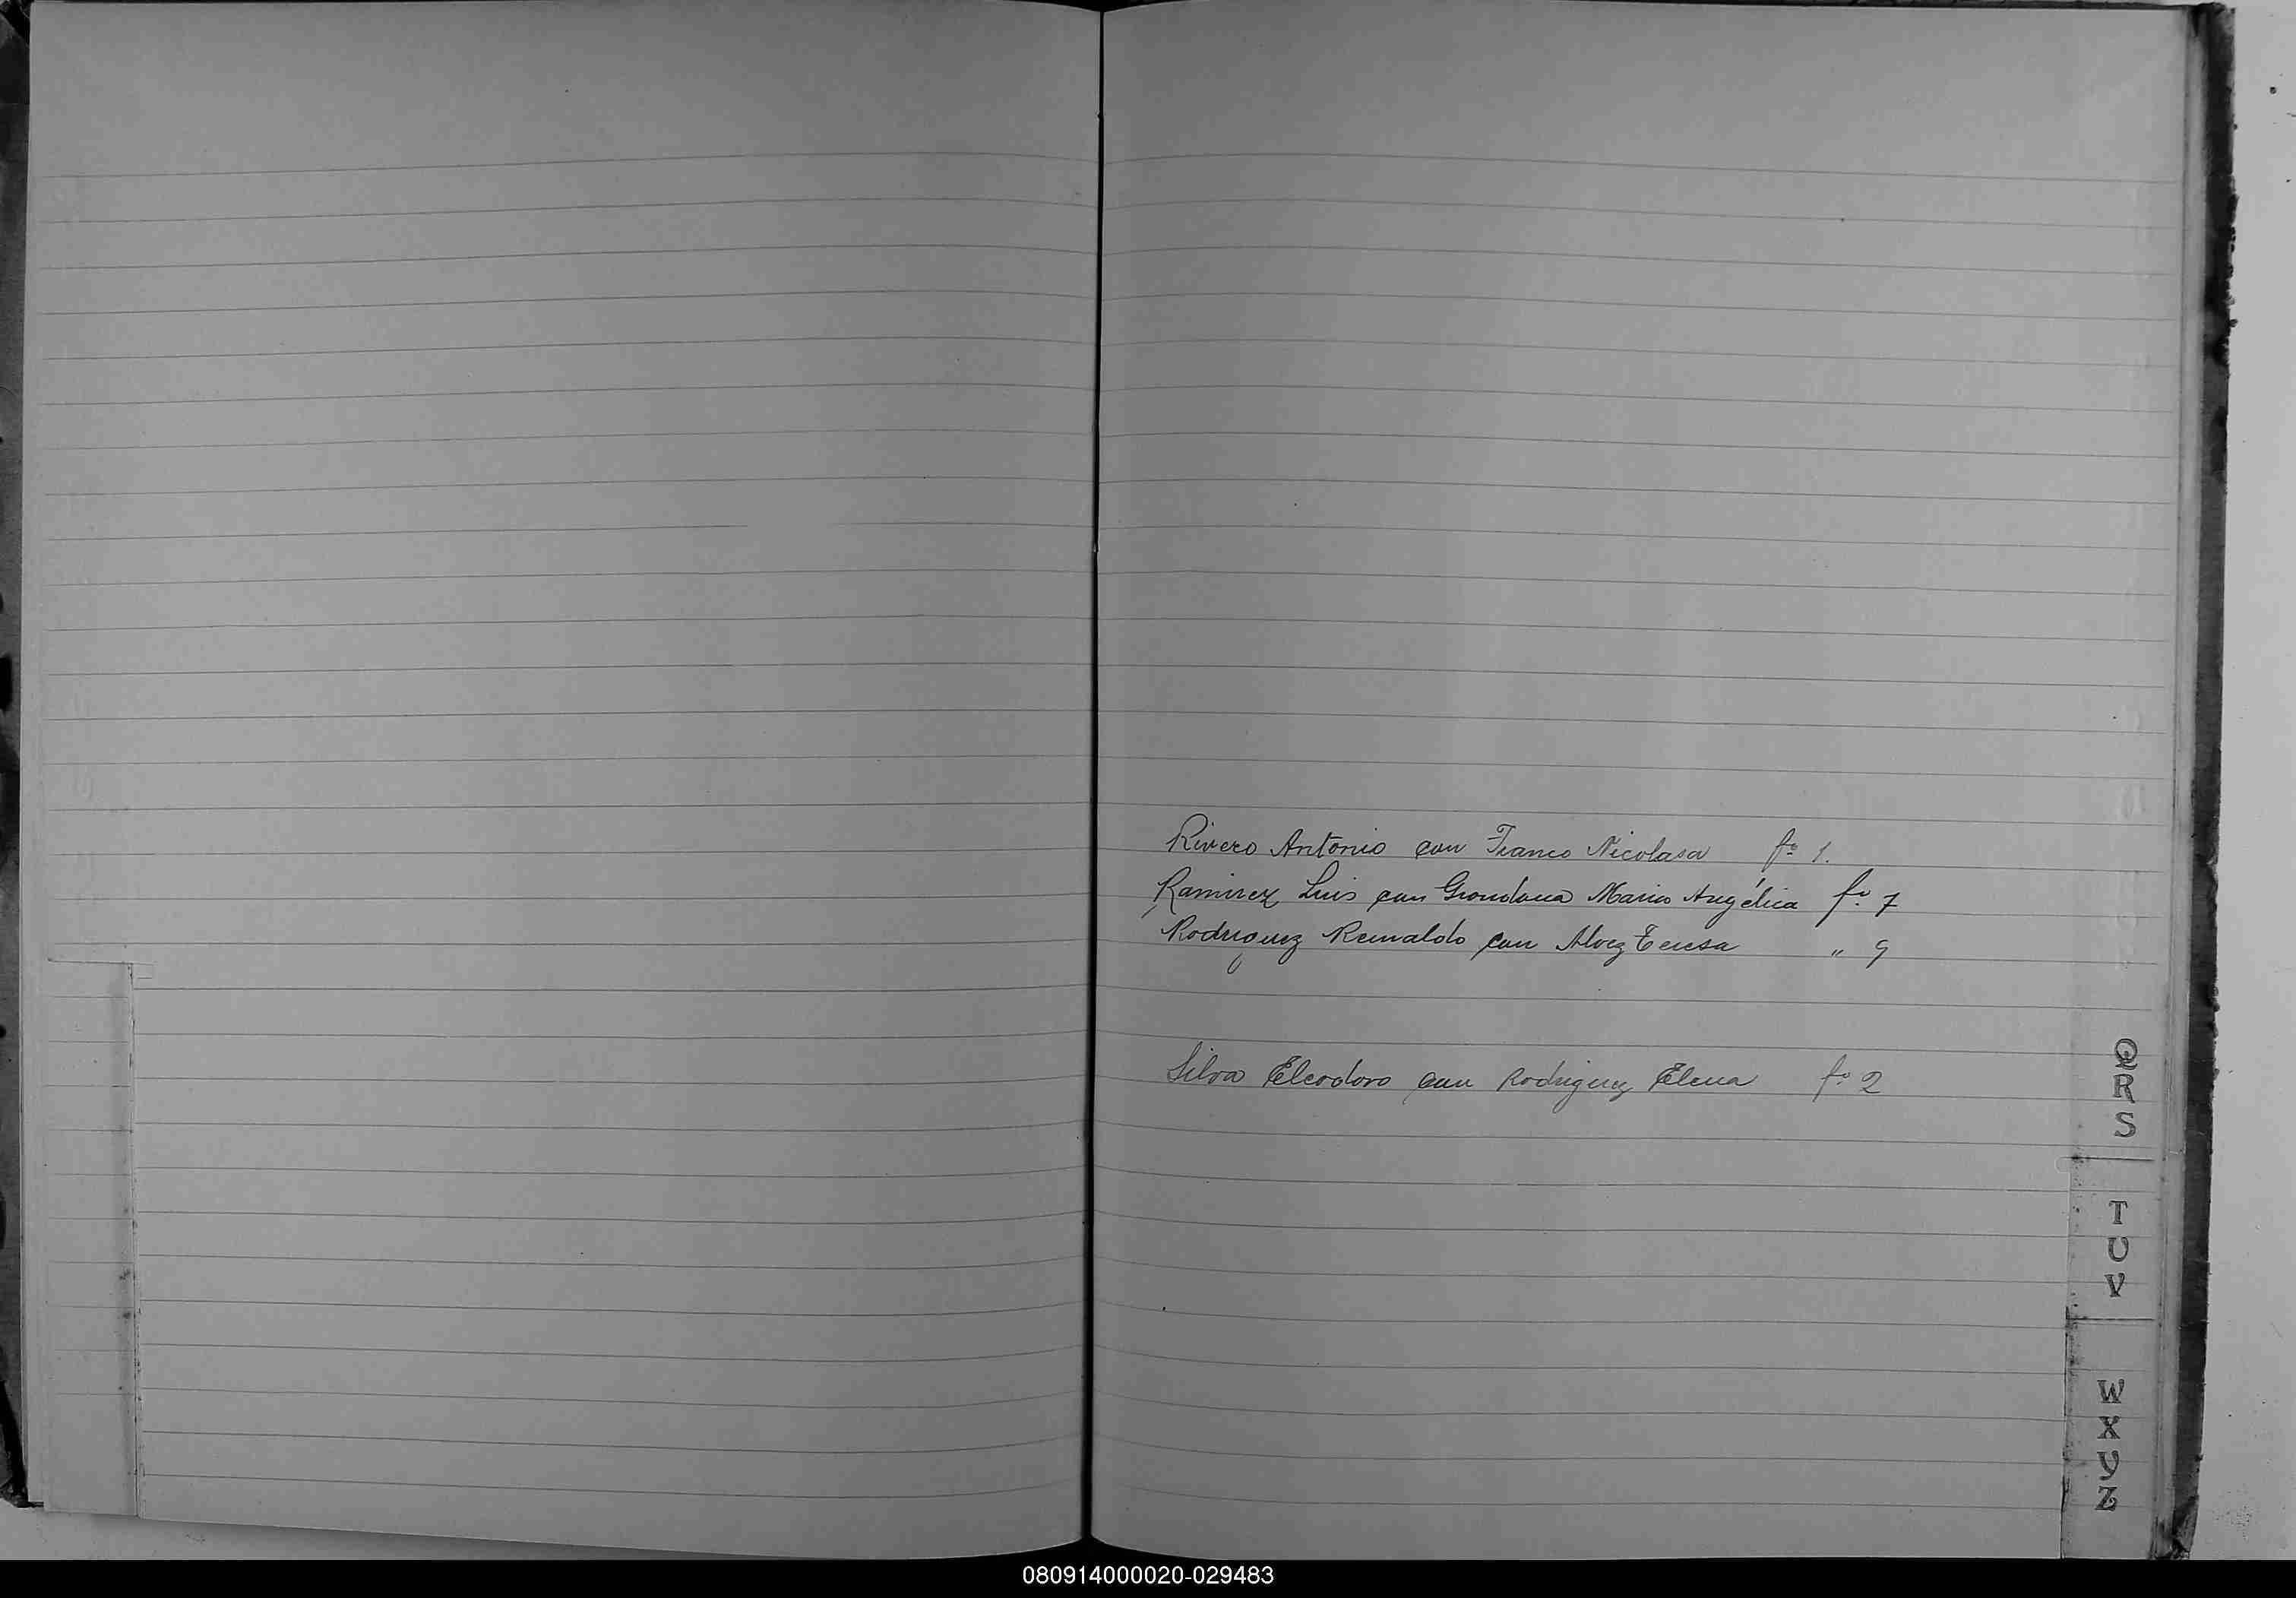 Rivero Antonio con Franco Nicolasa fº 1.
Ramirez Luis con Grondona Maria Angélica fº 7
Rodriguez Reinaldo con Alvez Teresa " 9
Silva Eleodoro con Rodriguez Elena fº 2
Q
R
S
T
U
V
W
X
Y
Z
080914000020-029483